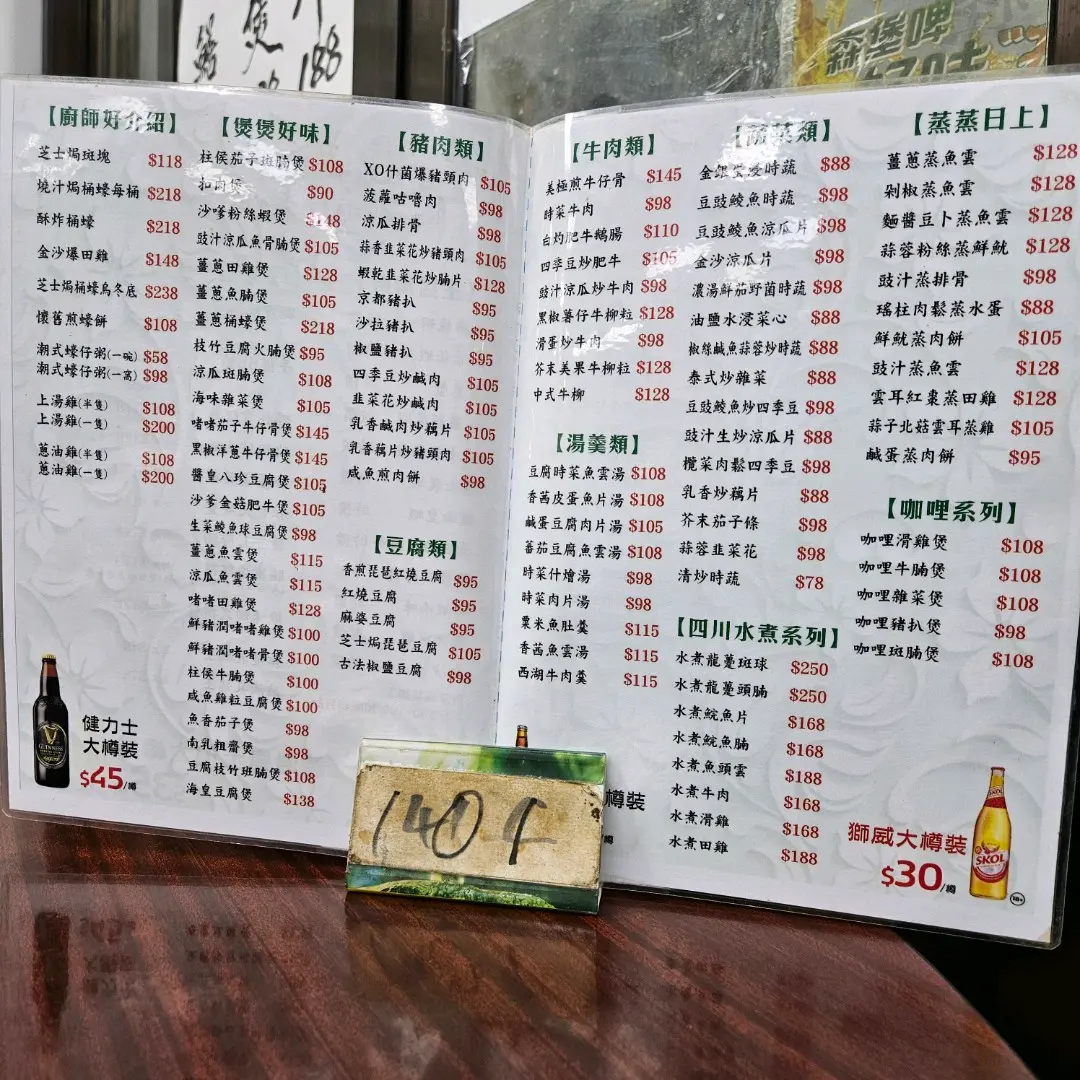 煲
188
森堡啤
【廚師好介紹】
芝士焗斑塊 $118
燒汁焗桶蠔每桶 $218
酥炸桶蠔 $218
金沙爆田雞 $148
芝士焗桶蠔烏冬底 $238
懷舊煎蠔餅 $108
潮式蠔仔粥(一碗) $58
潮式蠔仔粥(一窩) $98
上湯雞(半隻) $108
上湯雞(一隻) $200
蔥油雞(半隻) $108
蔥油雞(一隻) $200
健力士
大樽裝
$45/樽
【煲煲好味】
柱侯茄子斑腩煲 $108
扣肉煲 $90
沙嗲粉絲蝦煲 $148
豉汁涼瓜魚骨腩煲 $105
薑蔥田雞煲 $128
薑蔥魚腩煲 $105
薑蔥桶蠔煲 $218
枝竹豆腐火腩煲 $95
涼瓜斑腩煲 $108
海味雜菜煲 $105
啫啫茄子牛仔骨煲 $145
黑椒洋蔥牛仔骨煲 $145
醬皇八珍豆腐煲 $105
沙爹金菇肥牛煲 $105
生菜鯪魚球豆腐煲 $98
薑蔥魚雲煲 $115
涼瓜魚雲煲 $115
啫啫田雞煲 $128
鮮豬潤啫啫雞煲 $100
鮮豬潤啫啫骨煲 $100
柱侯牛腩煲 $100
咸魚雞粒豆腐煲 $100
魚香茄子煲 $98
南乳粗齋煲 $98
豆腐枝竹斑腩煲 $108
海皇豆腐煲 $138
【豬肉類】
XO什菌爆豬頸肉 $105
菠蘿咕嚕肉 $98
涼瓜排骨 $98
蒜香韭菜花炒豬頸肉 $105
蝦乾韭菜花炒腩片 $128
京都豬扒 $95
沙拉豬扒 $95
椒鹽豬扒 $95
四季豆炒鹹肉 $105
韭菜花炒鹹肉 $105
乳香鹹肉炒藕片 $105
乳香藕片炒豬頸肉 $105
咸魚煎肉餅 $98
【豆腐類】
香煎琵琶紅燒豆腐 $95
紅燒豆腐 $95
麻婆豆腐 $95
芝士焗琵琶豆腐 $105
古法椒鹽豆腐 $98
【牛肉類】
美極煎牛仔骨 $145
時菜牛肉 $98
白灼肥牛鵝腸 $110
四季豆炒肥牛 $105
豉汁涼瓜炒牛肉 $98
黑椒薯仔牛柳粒 $128
滑蛋炒牛肉 $98
芥末美果牛柳粒 $128
中式牛柳 $128
【湯羹類】
豆腐時菜魚雲湯 $108
香茜皮蛋魚片湯 $108
鹹蛋豆腐肉片湯 $105
蕃茄豆腐魚雲湯 $108
時菜什燴湯 $98
時菜肉片湯 $98
粟米魚肚羹 $115
香茜魚雲湯 $115
西湖牛肉羹 $115
樽裝
【蔬菜類】
金銀蛋浸時蔬 $88
豆豉鯪魚時蔬 $98
豆豉鯪魚涼瓜片 $98
金沙涼瓜片 $98
濃湯鮮茄野菌時蔬 $98
油鹽水浸菜心 $88
椒絲鹹魚蒜蓉炒時蔬 $88
泰式炒雜菜 $88
豆豉鯪魚炒四季豆 $98
豉汁生炒涼瓜片 $88
欖菜肉鬆四季豆 $98
乳香炒藕片 $88
芥末茄子條 $98
蒜蓉韭菜花 $98
清炒時蔬 $78
【四川水煮系列】
水煮龍躉斑球 $250
水煮龍躉頭腩 $250
水煮鯇魚片 $168
水煮鯇魚腩 $168
水煮魚頭雲 $188
水煮牛肉 $168
水煮滑雞 $168
水煮田雞 $188
【蒸蒸日上】
薑蔥蒸魚雲 $128
剁椒蒸魚雲 $128
麵醬豆卜蒸魚雲 $128
蒜蓉粉絲蒸鮮魷 $128
豉汁蒸排骨 $98
瑤柱肉鬆蒸水蛋 $88
鮮魷蒸肉餅 $105
豉汁蒸魚雲 $128
雲耳紅棗蒸田雞 $128
蒜子北菇雲耳蒸雞 $105
鹹蛋蒸肉餅 $95
【咖哩系列】
咖哩滑雞煲 $108
咖哩牛腩煲 $108
咖哩雜菜煲 $108
咖哩豬扒煲 $98
咖哩斑腩煲 $108
獅威大樽裝
$30/樽
SKOL
18+
GUINNESS
140